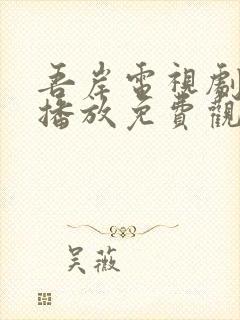 吾岸電視劇
播放免費觀
吴薇